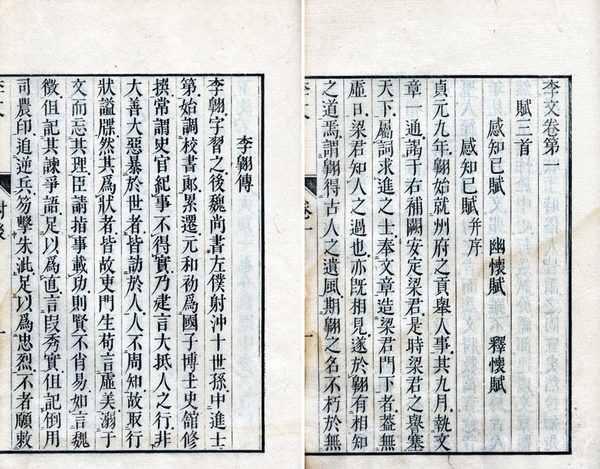 李文卷第一
賦三首
感知已賦 幽懷賦 釋懷賦
感知已賦并序
貞元九年翱始就州府之貢舉人事其九月執文
章一通謁于右補闕安定梁君是時梁君之譽塞
天下屬詞求進之士奉文章造梁君門下者蓋無
虛日梁君知人之過也亦旣相見遂於翱有相知
之道焉謂翱得古人之遺風期翱之名不朽於無
李翱傳
李翱字習之後魏尚書左僕射沖十世孫中進士
第始調校書郞累遷元和初爲國子博士史館修
撰常謂史官紀事不得實乃建言大抵人之行非
大善大惡暴於世者皆訪於人人不周知故取行
狀謚牒然其爲狀者皆故吏門生苟言虛美溺于
文而忘其理臣請指事載功則賢不肖易如言魏
徵但記其諫爭語足以爲直言段秀實但記倒用
司農印追逆兵笏擊朱泚足以爲忠烈不者願敕